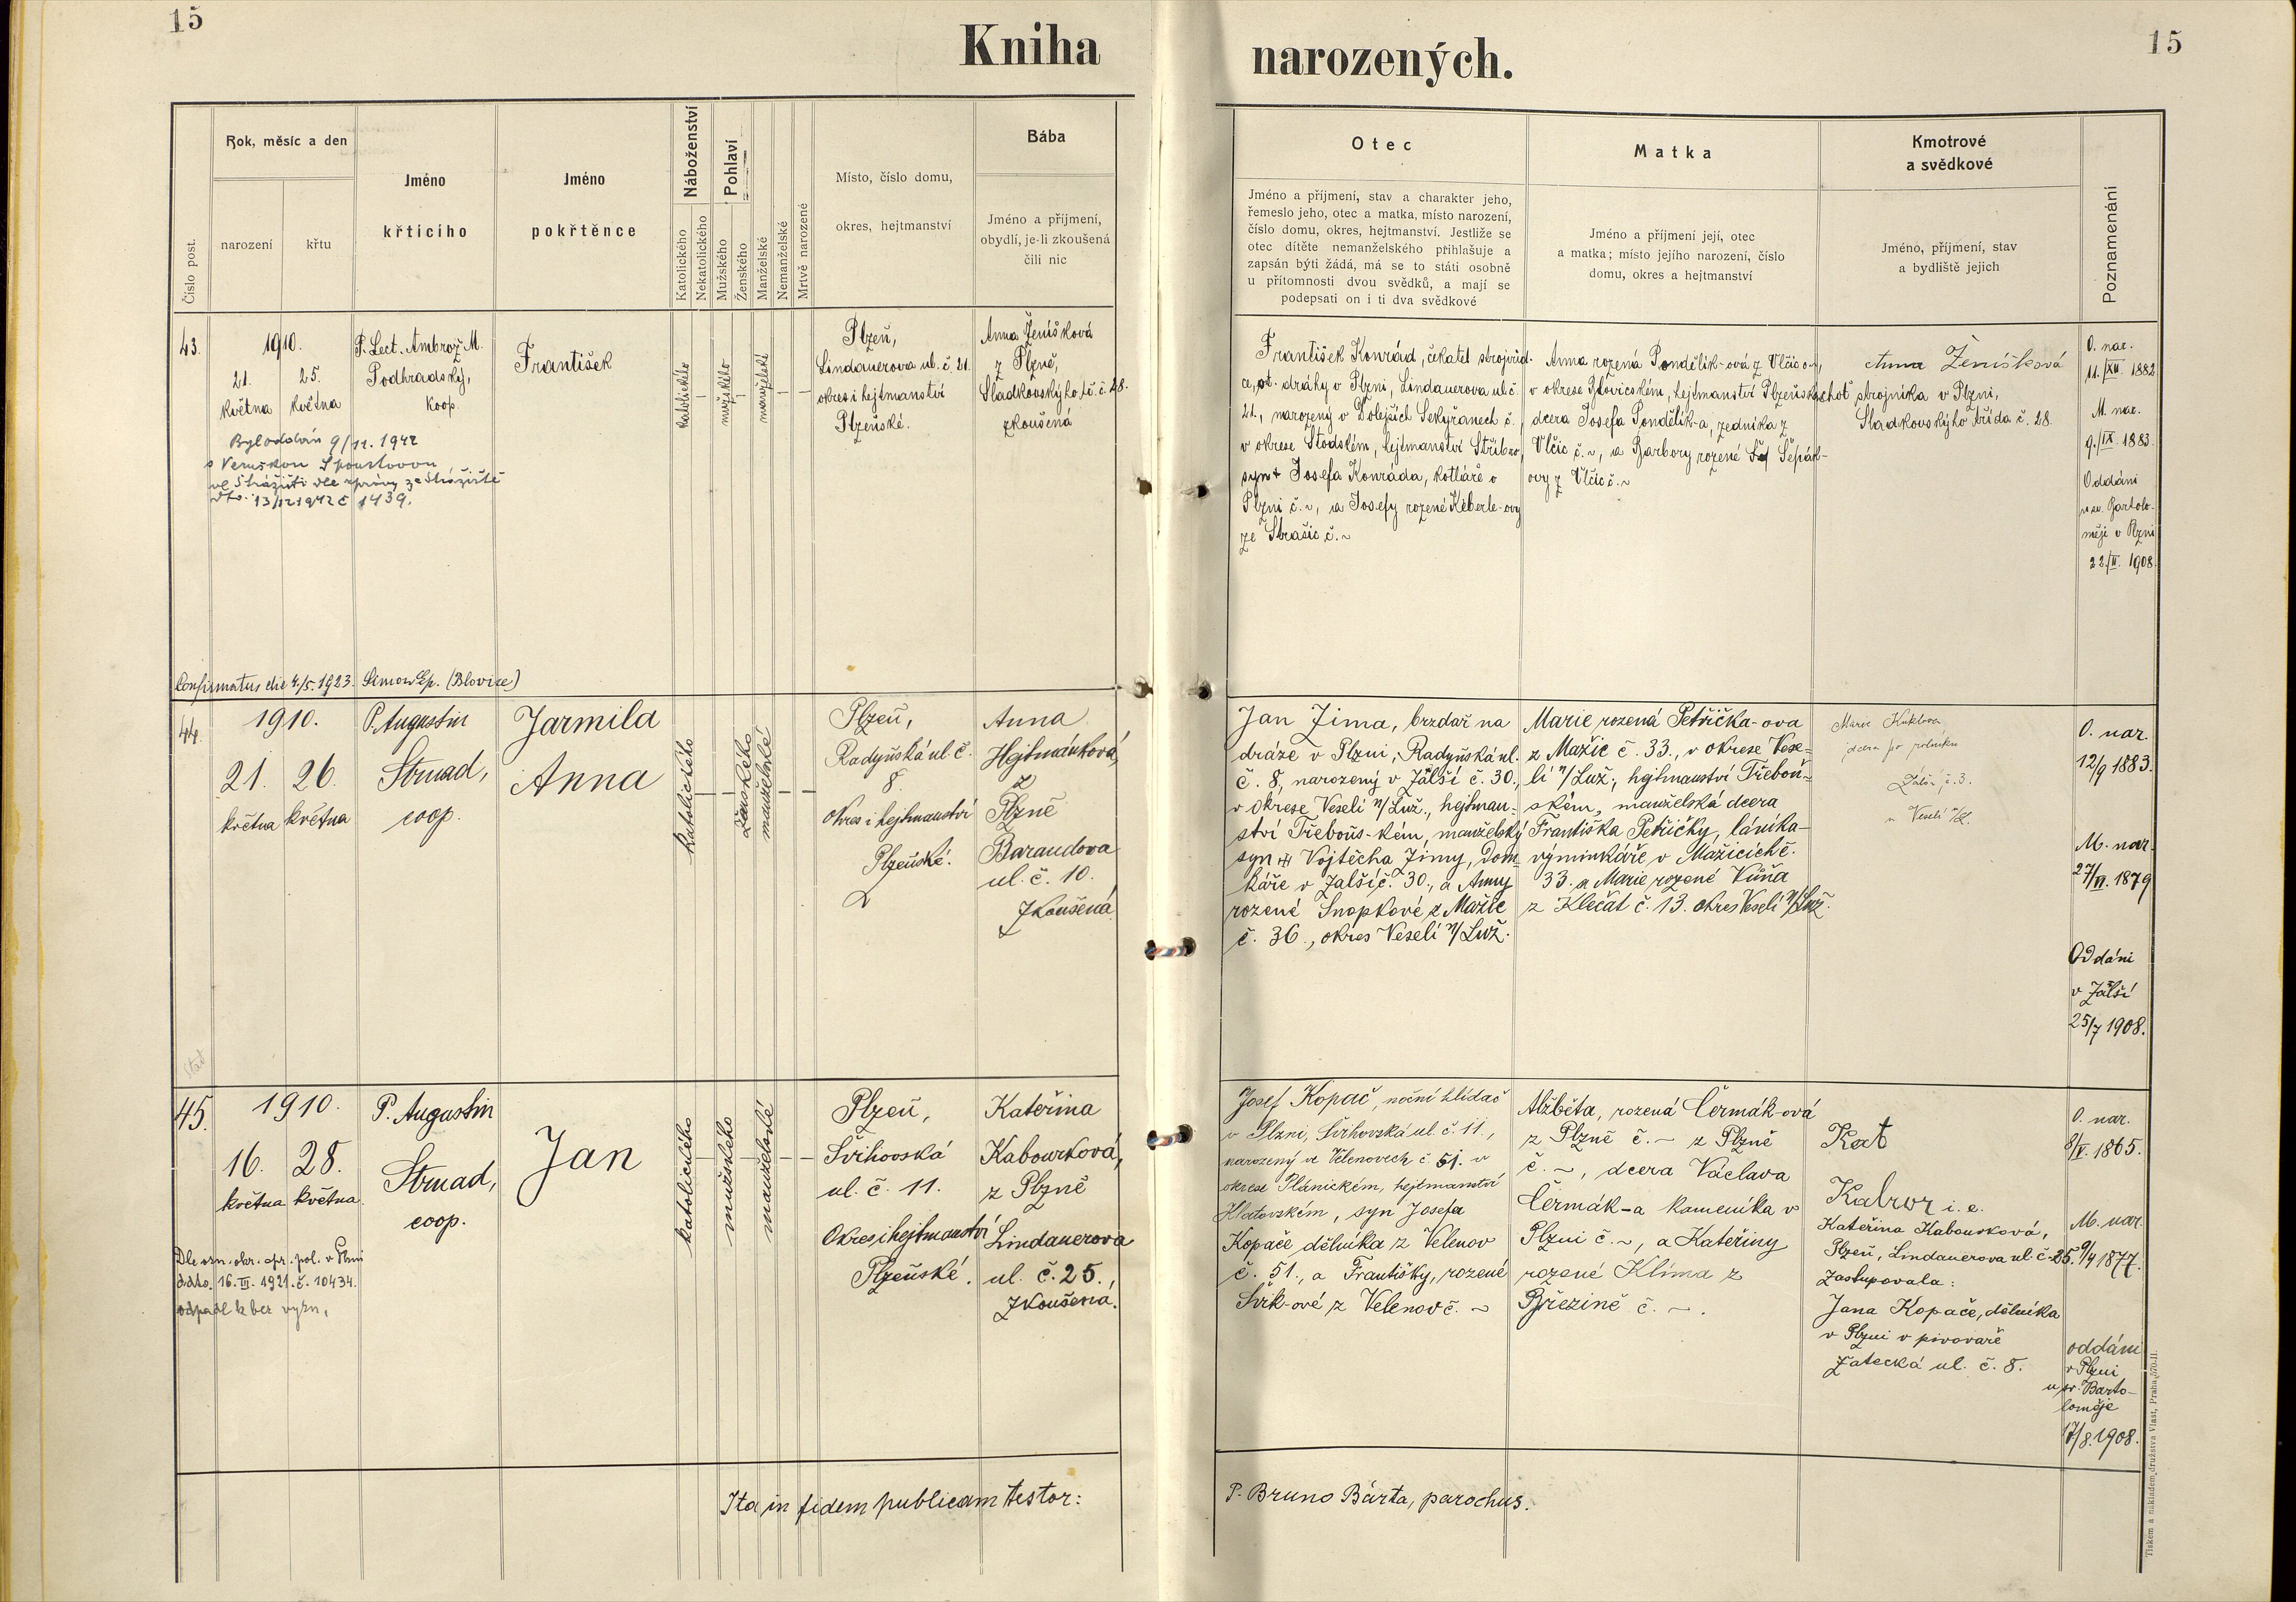 15
Kniha
narozených.
15
Číslo post.
Rok, měsíc a den
narození
křtu
Jméno
křtícího
Jméno
pokřtěnce
Náboženství
Katolického
Nekatolického
Pohlaví
Mužského
Ženského
Manželské
Nemanželské
Mrtvě narozené
Místo, číslo domu,
okres, hejtmanství
Bába
Jméno a příjmení,
obydlí, je-li zkoušená
čili nic
Otec
Jméno a příjmení, stav a charakter jeho,
řemeslo jeho, otec a matka, místo narození,
číslo domu, okres, hejtmanství. Jestliže se
otec dítěte nemanželského přihlašuje a
zapsán býti žádá, má se to státi osobně
u přítomnosti dvou svědků, a mají se
podepsati on i ti dva svědkové
Matka
Jméno a příjmení její, otec
a matka; místo jejího narození, číslo
domu, okres a hejtmanství
Kmotrové
a svědkové
Jméno, příjmení, stav
a bydliště jejich
Poznamenání
43.
1910.
21. 25.
května května
P. Lect. Ambrož M.
Podhradský,
koop.
František
katolického
mužského
manželské
Plzeň,
Lindauerova ul. č. 21.
okres i hejtmanství
Plzeňské.
Anna Ženíšková
z Plzně,
Sladkovského tř. č. 28.
zkoušená
Byl oddán 9/11. 1942
ve Strážišti dle zprávy ze Strážiště
dto. 13/12 1942 č 1439.
Confirmatus die 4./5. 1923. Simon Ep. (Blovice)
František Konrád, čekatel strojvůd-
ce, st. dráhy v Plzni, Lindauerova ul. č.
21., narozený v Dolejších Sekyřanech č.
v okrese Stodském, hejtmanství Stříbro,
syn + Josefa Konráda, kotláře v
Plzni č. ~, a Josefy rozené Keberle-ovy
ze Strašic č. ~
Anna rozená Pondělík-ová z Vlčic č. ~,
v okrese Blovickém, hejtmanství Plzeňském,
dcera Josefa Pondělík-a, zedníka z
Vlčic č. ~, a Barbory rozené Šepák-
ovy z Vlčic č. ~
Anna Ženíšková
choť strojníka v Plzni,
Sladkovského třída č. 28.
O. nar.
11./XII. 1882
M. nar.
9./IX. 1883.
Oddáni
u sv. Bartolo-
měje v Plzni
22./II. 1908.
44.
1910.
21. 26.
května května
P. Augustin
Strnad,
coop.
Jarmila
Anna
katolického
ženského
manželské
Plzeň,
Radyňská ul. č.
8.
Okres i hejtmanství
Plzeňské.
Anna
Hejtmánková,
z
Plzně
Barandova
ul. č. 10.
Zkoušená.
Jan Zima, brzdař na
dráze v Plzni, Radyňská ul.
č. 8, narozený v Zálší č. 30.,
v okrese Veselí n/Luž., hejtman-
ství Třeboňs-kém, manželský
syn + Vojtěcha Zimy, Dom-
káře v Zalší č. 30., a Anny
rozené Snopkové z Mažic
č. 36., okres Veselí n/Luž.
Marie rozená Petřička-ova
z Mažic č. 33., v okrese Vese-
lí n/Luž., hejtmanství Třeboň-
ském, manželská dcera
Františka Petřičky, láníka-
výminkáře v Mažicích č.
33. a Marie rozené Vůňa
z Klečat č. 13. okres Veselí n/Luž.
Marie Kuklova
dcera po rolníku
Zálší č. 3.
u Veselí n/L.
O. nar.
12/9 1883.
M. nar.
27/VI. 1879
Oddáni
v Zálší
25/7 1908.
45.
1910.
16. 28.
května května
P. Augustin
Strnad,
coop.
Jan
katolického
mužského
manželské
Plzeň,
Švihovská
ul. č. 11.
Okres i hejtmanství
Plzeňské.
Kateřina
Kabourková,
z Plzně
Lindauerova
ul. č. 25.,
Zkoušená.
Dle ozn. okr. spr. pol. v Plzni
ddto. 16. III. 1921. č. 10434.
odpadl k bez vyzn.
Josef Kopač, noční hlídač
v Plzni, Švihovská ul. č. 11.,
narozený ve Velenovech č 51. v
okrese Plánickém, hejtmanství
Klatovském, syn Josefa
Kopače dělníka z Velenov
č. 51., a Františky, rozené
Švik-ové z Velenov č. ~
Alžběta, rozená Čermák-ová
z Plzně č. ~ z Plzně
č. ~, dcera Václava
Čermák-a kameníka v
Plzni č. ~, a Kateřiny
rozené Klíma z
Březině č. ~.
Kat
Kabror i. e.
Kateřina Kabourková,
Plzeň, Lindauerova ul. č. 25.
Zastupovala:
Jana Kopače, dělníka
v Plzni v pivovaře
Žatecká ul. č. 8.
O. nar.
8/V. 1865.
M. nar.
9/4 1877.
oddáni
v Plzni
u sv. Barto-
loměje
17/8. 1908.
Ita in fidem publicam testor:
P. Bruno Bárta, parochus.
Tiskem a nákladem družstva Vlast, Praha 570-II.